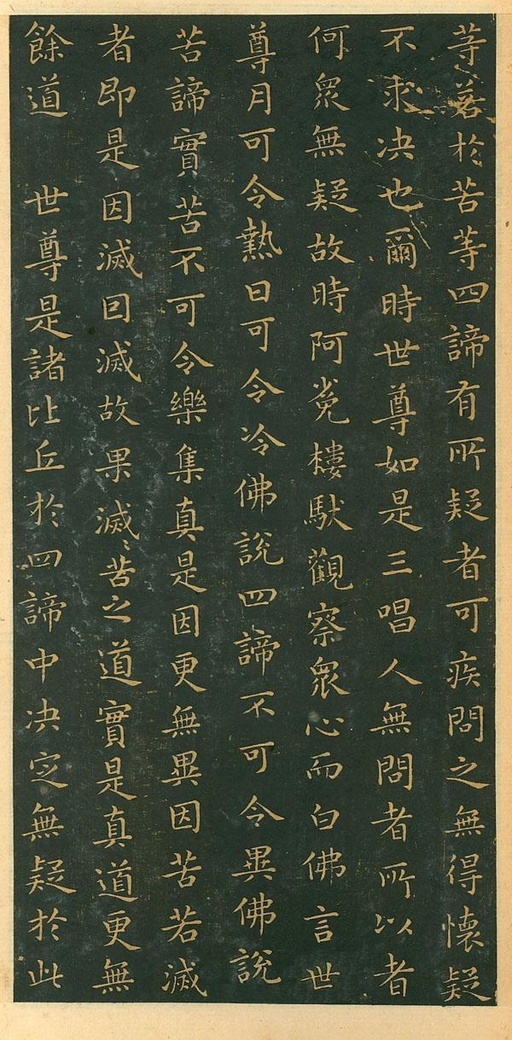 等若於苦等四諦有所疑者可疾問之無得懷疑
不求決也爾時世尊如是三唱人無問者所以者
何眾無疑故時阿㝹樓馱觀察眾心而白佛言世
尊月可令熱日可令冷佛說四諦不可令異佛說
苦諦實苦不可令樂集真是因更無異因苦若滅
者即是因滅因滅故果滅滅苦之道實是真道更無
餘道　世尊是諸比丘於四諦中決定無疑於此